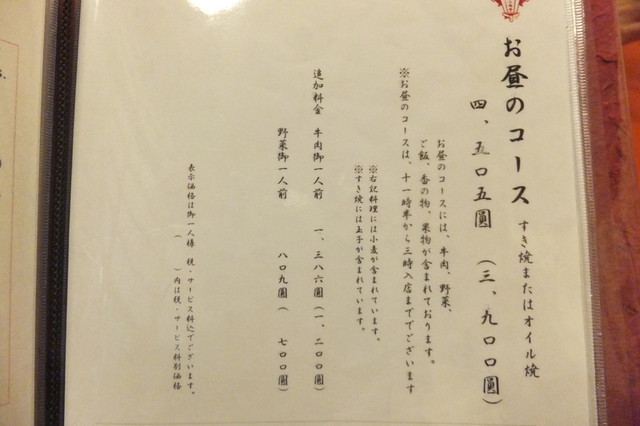 お昼のコース すき焼またはオイル焼
四、五〇五圓 (三、九〇〇圓)
お昼のコースには、牛肉、野菜、
ご飯、香の物、果物が含まれております。
※お昼のコースは、十一時半から三時入店まででございます
※右記料理には小麦が含まれています。
※すき焼には玉子が含まれています。
追加料金 牛肉御一人前 一、三八六圓(一、二〇〇圓)
野菜御一人前 八〇九圓( 七〇〇圓)
表示価格は御一人様 税・サービス料込でございます。
( )内は税・サービス料別価格